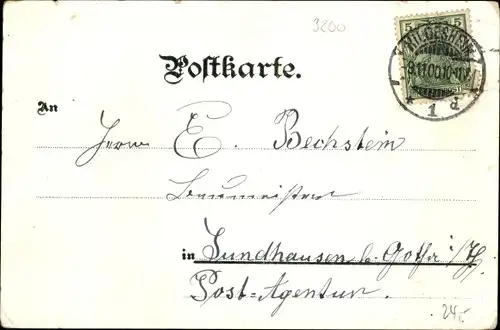 3200
5 5
HILDESHEIM
9.11.00.10-11V.
* 1 d
Postkarte.
An
Herrn E. Bechstein
Baumeister
in Sundhausen b. Gotha i/Th.
Post-Agentur.
24,-